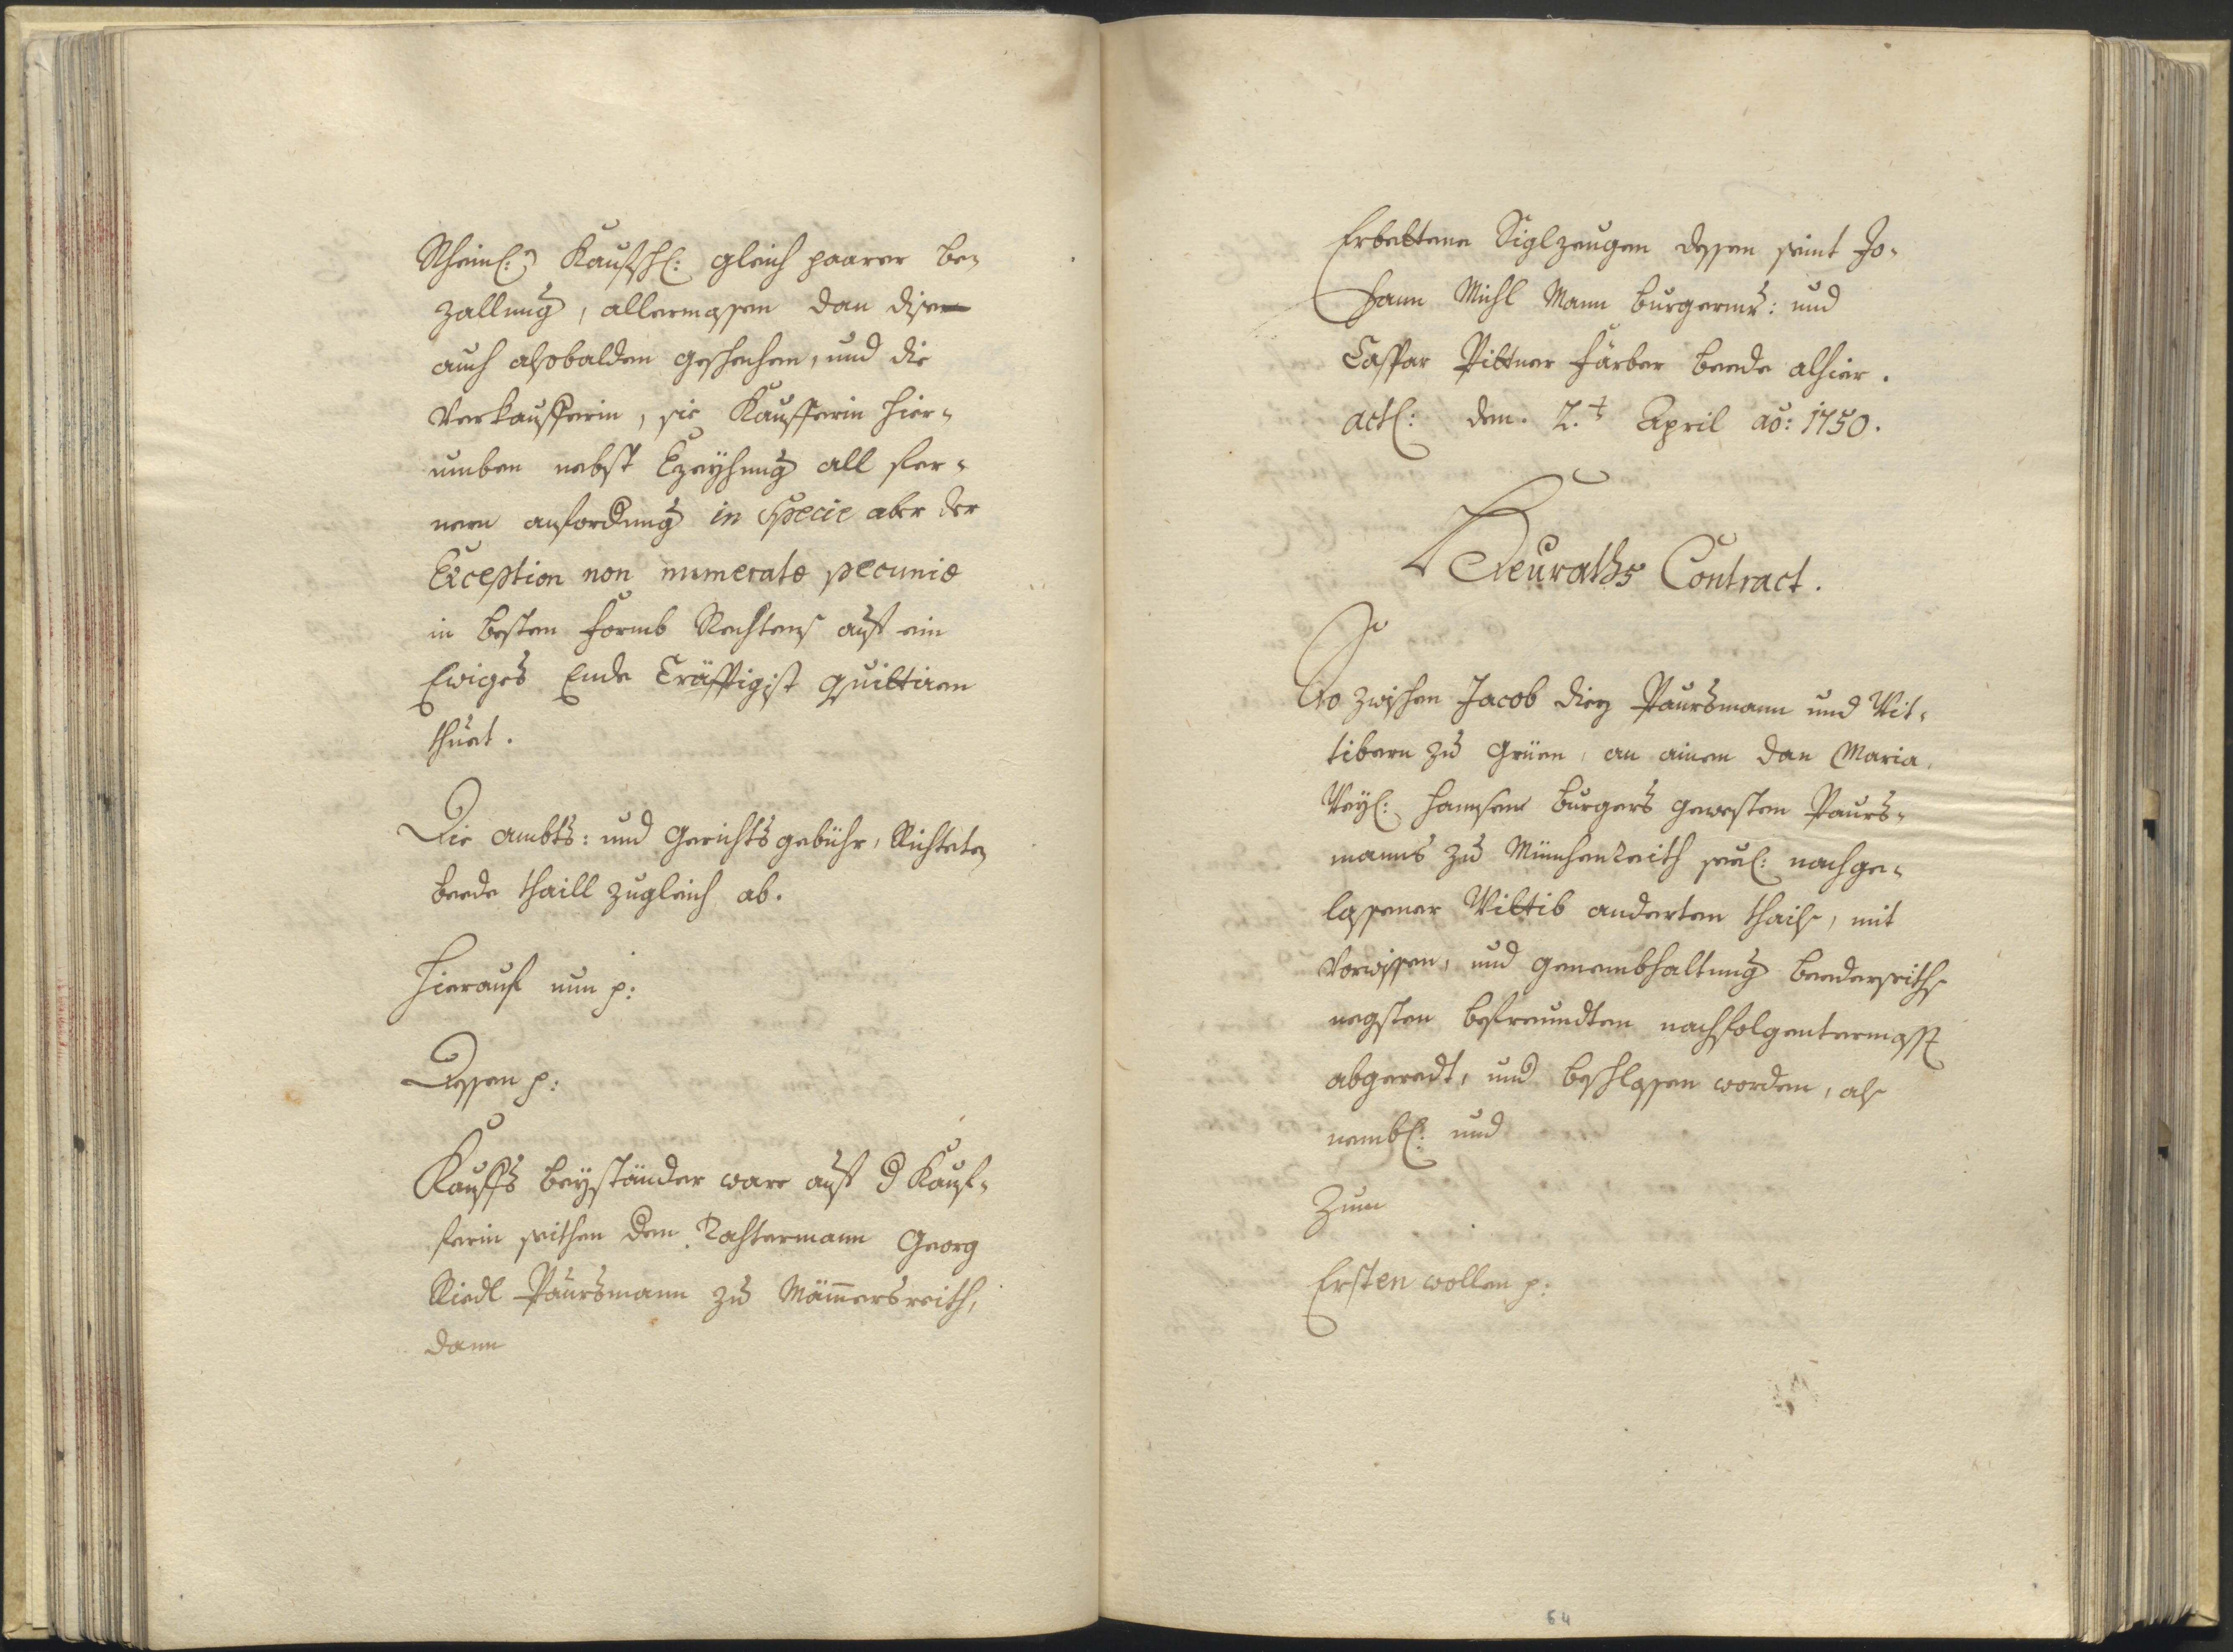 Rheinl: Kauffschl: gleich paarer be-
zallung, allermassen dan dise
auch alsobalden geschechen, und die
Verkaufferin, sie Kaufferin hier-
umben nebst Vzeyhung all fer-
nern anfordung in Specie aber der
Exception non numeratæ pecuniæ
in besten Formb Rechtens auf ein
Ewiges Ende Cräfftigist quittiren
thuet.
Die Ambts: und Gerichtsgebühr, Richteten
beede thaill zugleich ab.
Hierauf nun p:
Dessen p:
Kauffs Beyständer ware auf d Kauf-
ferin seithen dem Tochtermann Georg
Riedl Paursmann zu Mämersreith,
dann
Erbettene Siglzeugen dessen seint Jo-
hann Michl Mann burgermr: und
Caspar Pittner Färber beede alhier.
actl: den 2.t April ao: 1750.
Heuraths Contract.
So zwischen Jacob Dietz Paursmann und Wit-
tibern zu Grüen, an ainem dan Maria
Weyl: Hannsen Burgers gewesten Paurs-
manns zu Münchenreith seel: nachge-
lassener Wittib anderten thails, mit
Vorwissen, und genembhaltung beederseiths
negsten befreundten nachfolgentermasst
abgeredt, und beschlossen worden, als
nembl: und
Zum
Ersten wollen p:
64